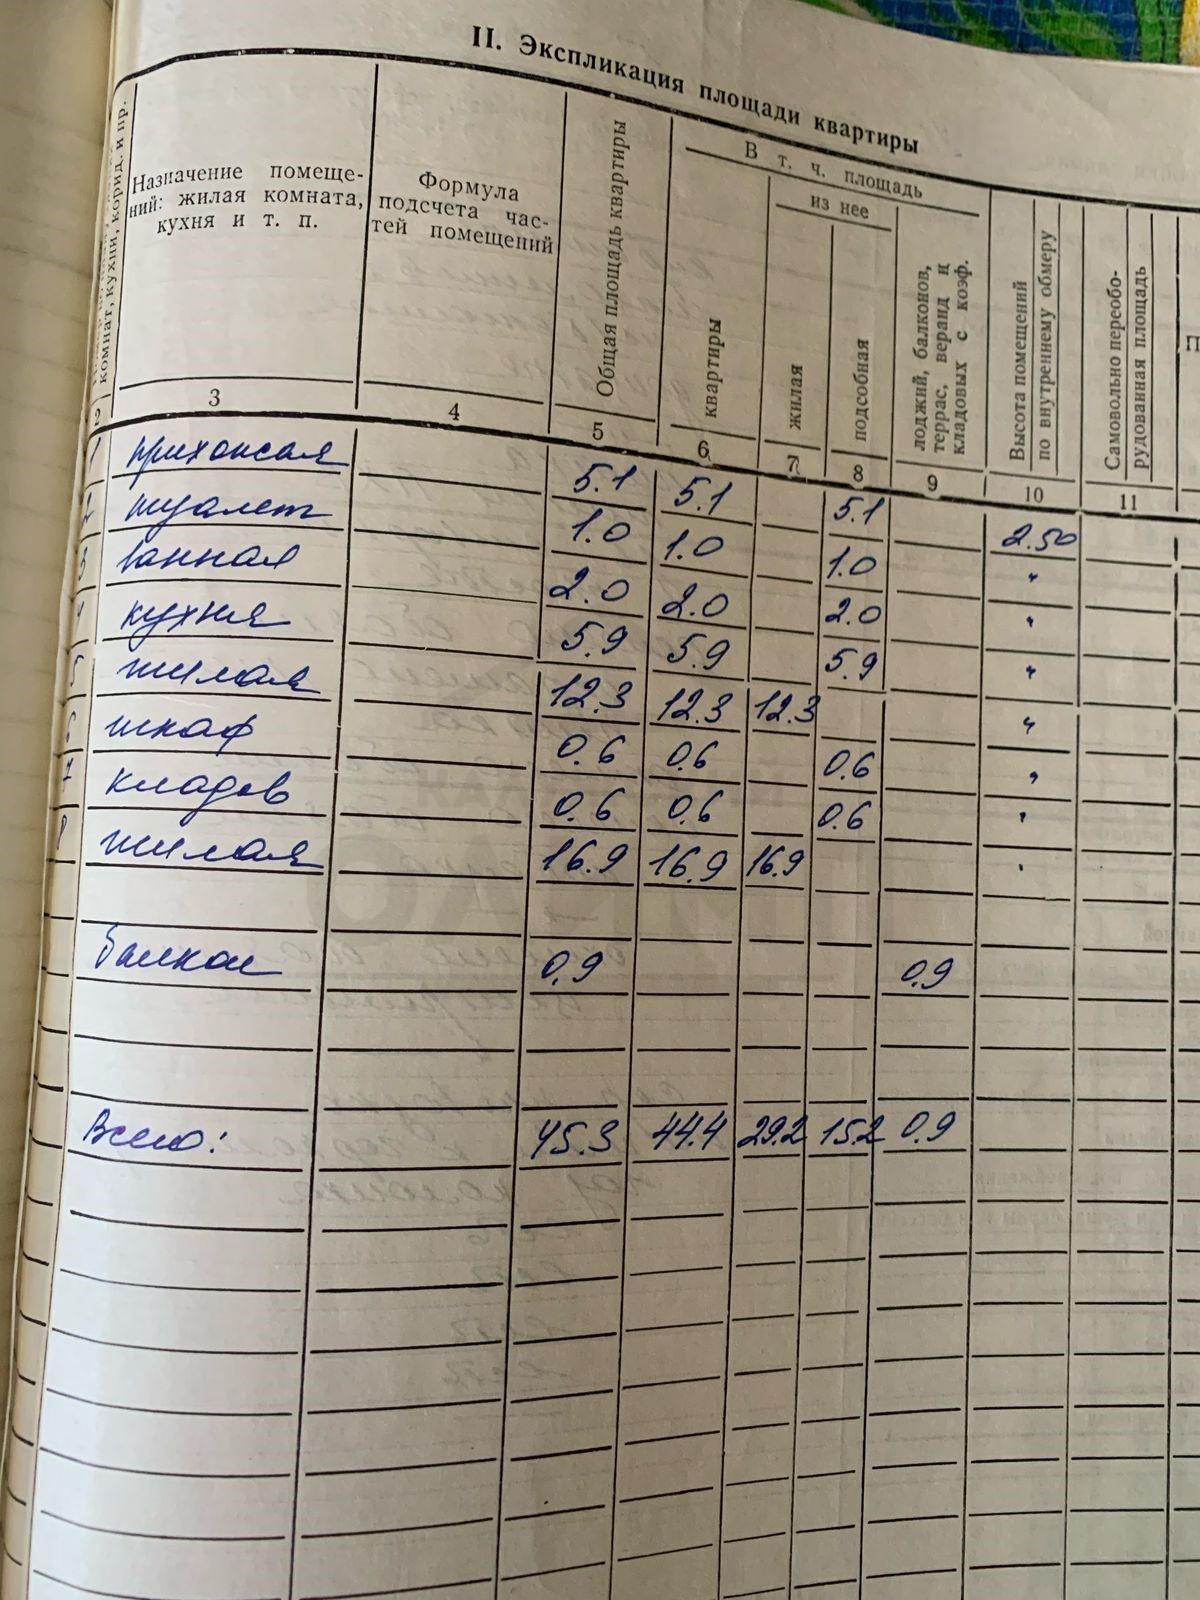 II. Экспликация площади квартиры
комнат, кухни, корид. и пр.
Назначение помеще-
ний: жилая комната,
кухня и т. п.
Формула
подсчета час-
тей помещений
Общая площадь квартиры
В т. ч. площадь
из нее
квартиры
жилая
подсобная
лоджий, балконов,
террас, веранд и
кладовых с коэф.
Высота помещений
по внутреннему обмеру
Самовольно переобо-
рудованная площадь
П
2 3 4 5 6 7 8 9 10 11
1 прихожая 5.1 5.1 5.1 2.50
2 туалет 1.0 1.0 1.0 "
3 ванная 2.0 2.0 2.0 "
4 кухня 5.9 5.9 5.9 "
5 жилая 12.3 12.3 12.3 "
6 шкаф 0.6 0.6 0.6 "
7 кладов 0.6 0.6 0.6 "
8 жилая 16.9 16.9 16.9 "
балкон 0.9 0.9
Всего: 45.3 44.4 29.2 15.2 0.9